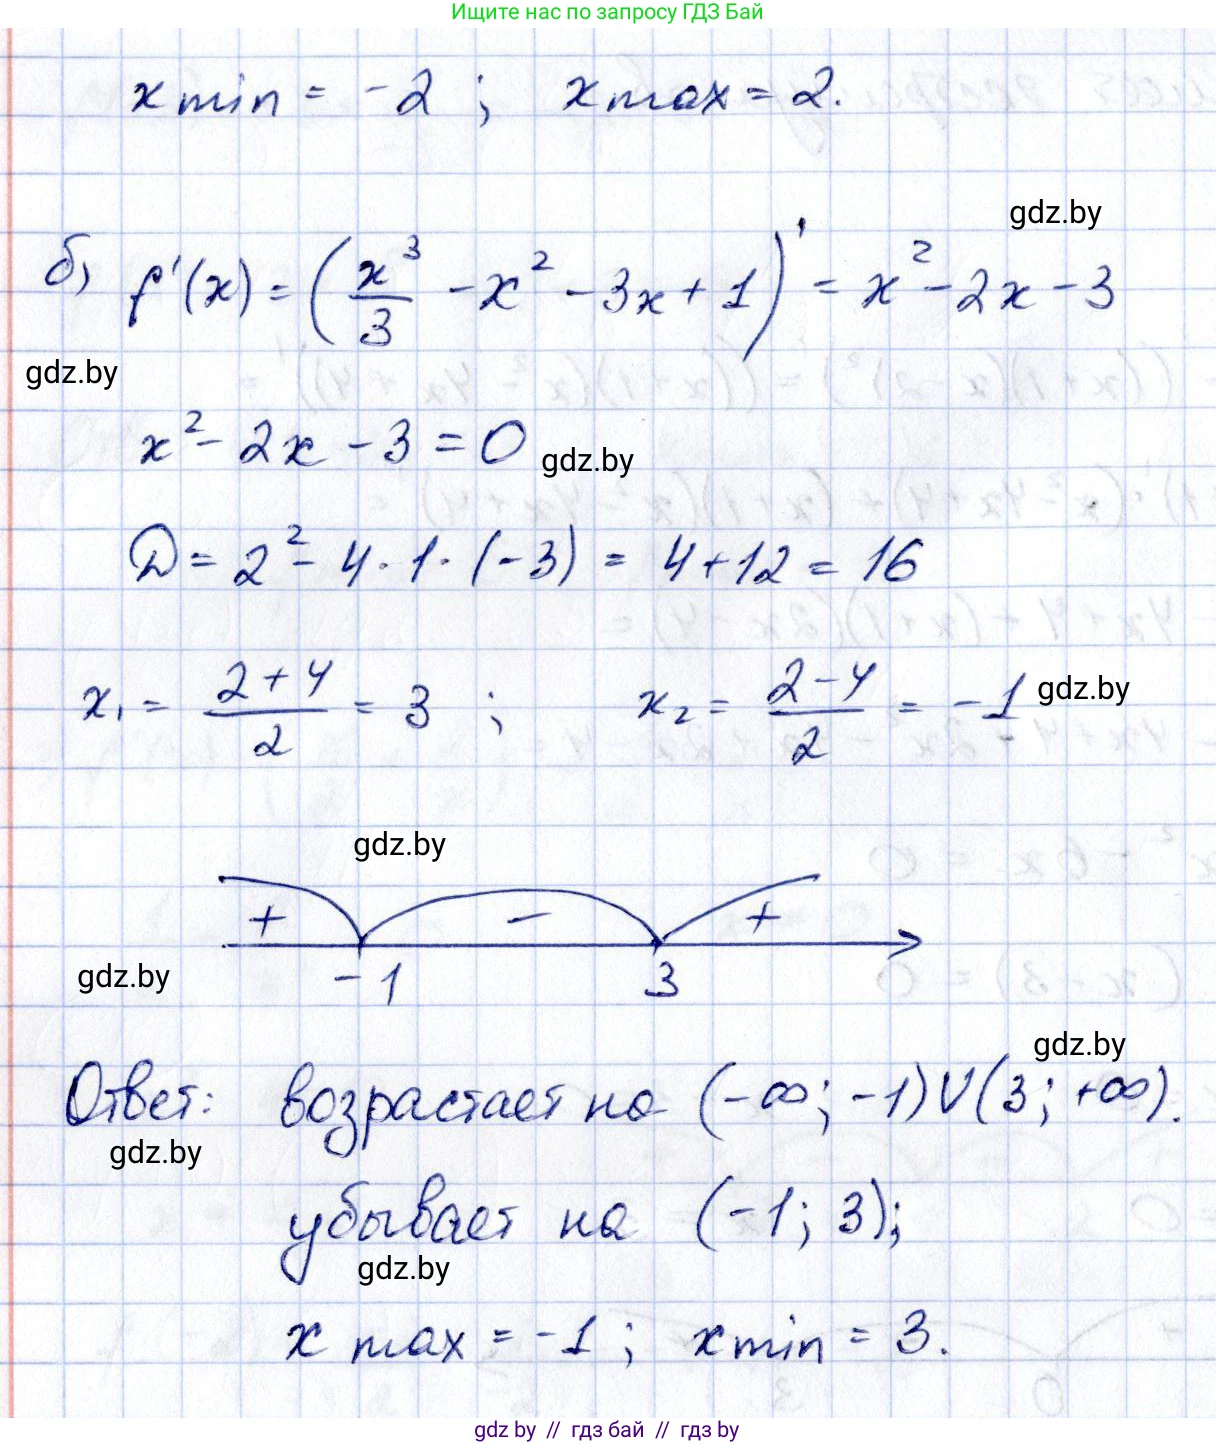 Ищите нас по запросу ГДЗ Бай
x min = -2 ; x max = 2.
gdz.by
б) f'(x) = (x³/3 - x² - 3x + 1)' = x² - 2x - 3
gdz.by
x² - 2x - 3 = 0
gdz.by
D = 2² - 4 · 1 · (-3) = 4 + 12 = 16
x₁ = (2+4)/2 = 3 ; x₂ = (2-4)/2 = -1
gdz.by
gdz.by
+ - +
gdz.by
-1 3
gdz.by
Ответ: возрастает на (-∞; -1) U (3; +∞).
gdz.by
убывает на (-1; 3);
gdz.by
x max = -1 ; x min = 3.
gdz by // гдз бай // гдз by